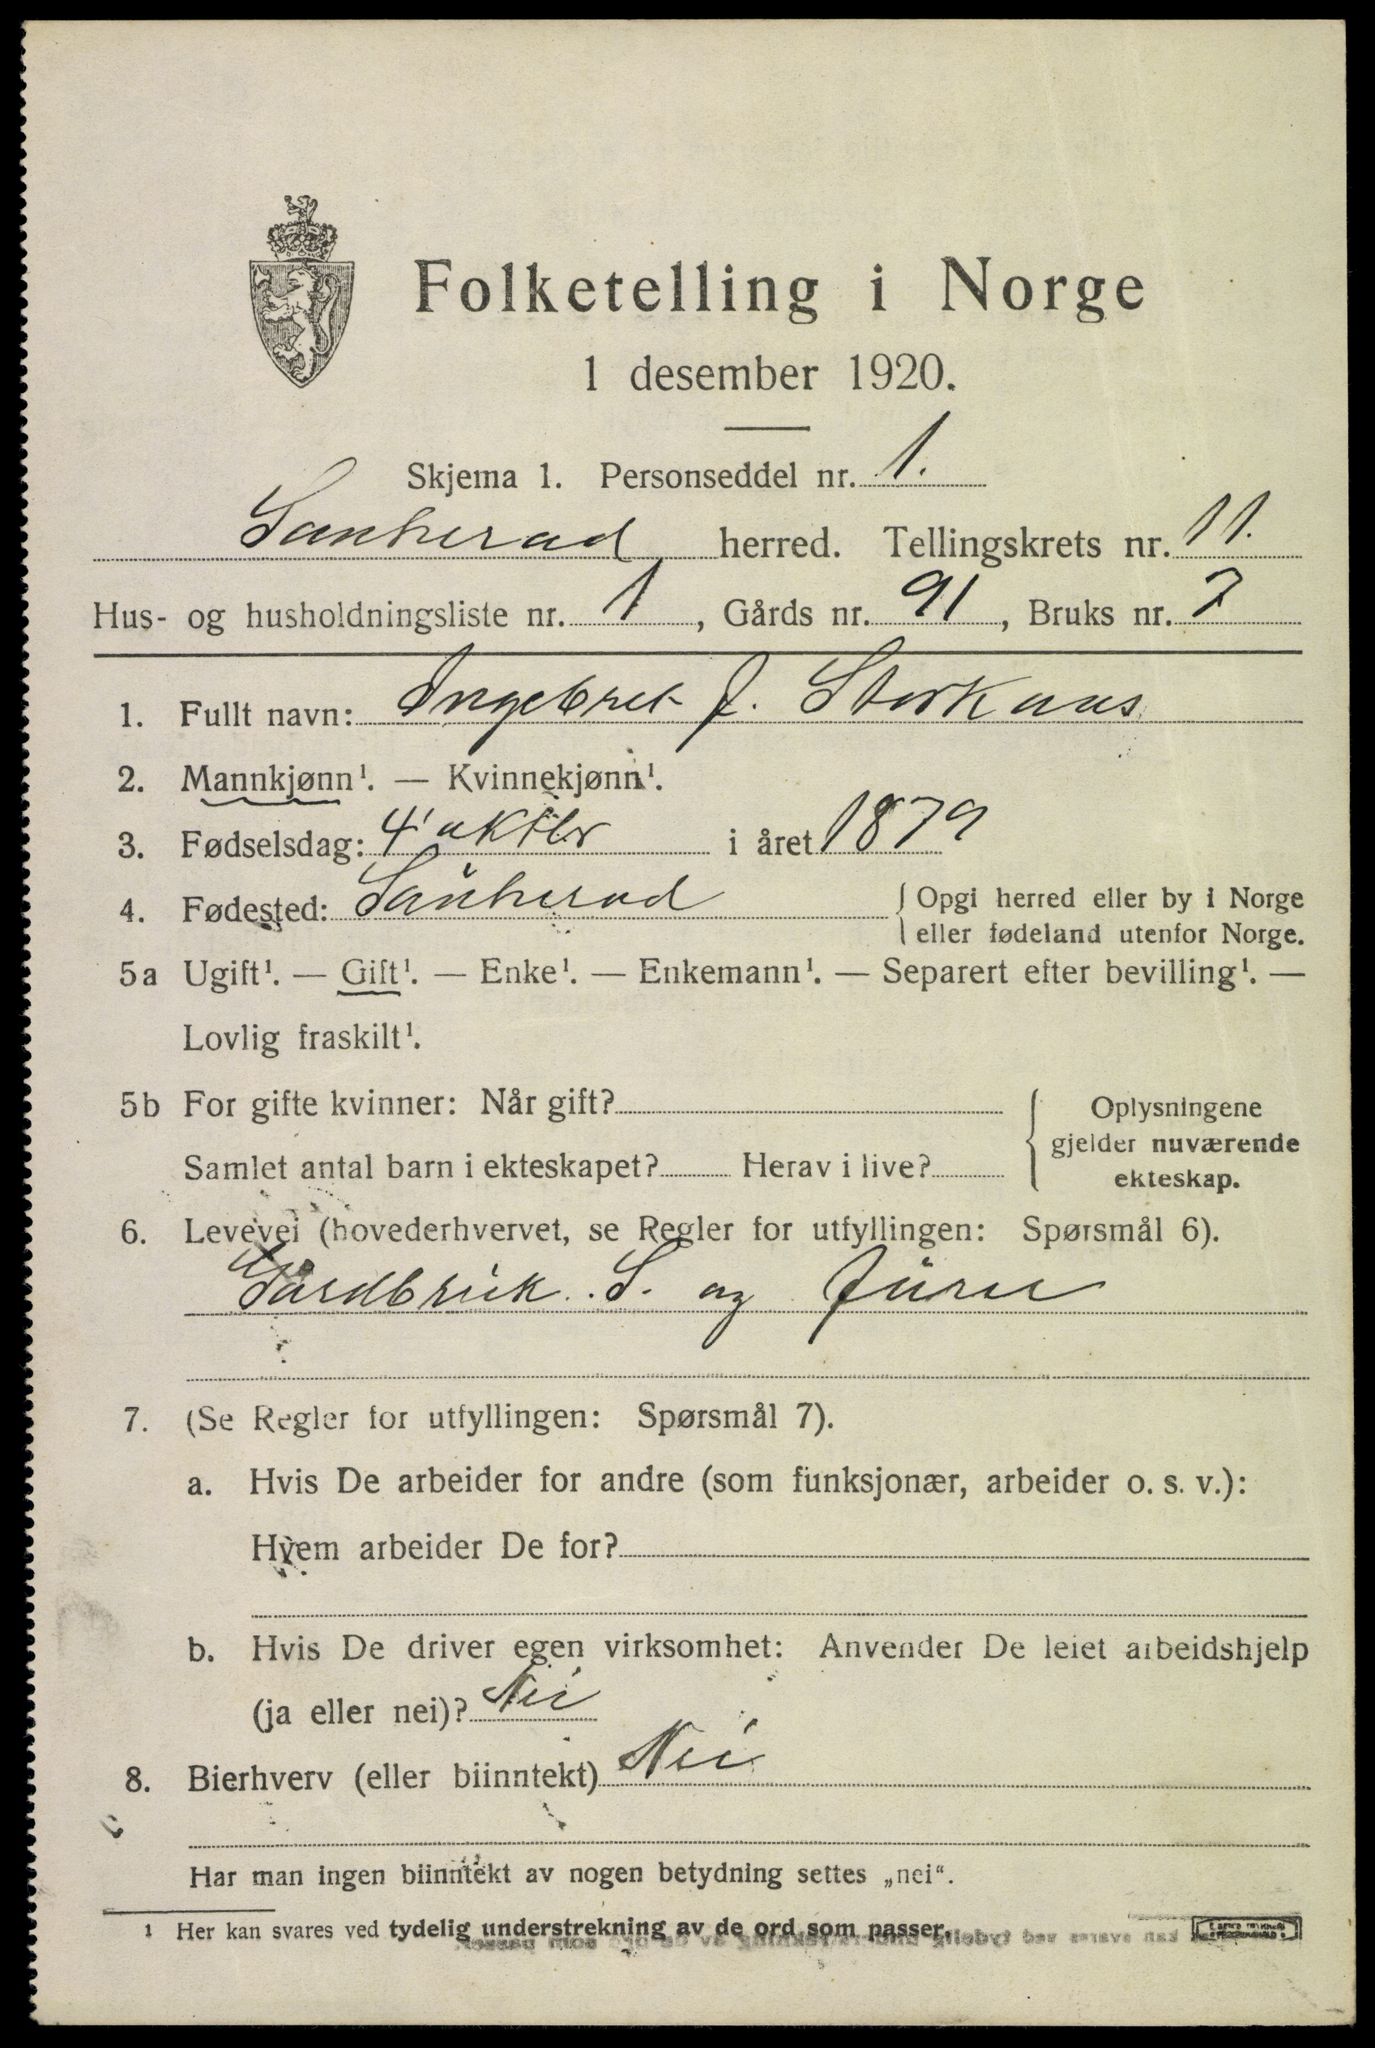 Folketelling i Norge
1 desember 1920.
Skjema 1. Personseddel nr. 1.
Sauherad herred. Tellingskrets nr. 11.
Hus- og husholdningsliste nr. 1, Gårds nr. 91, Bruks nr. 2
1. Fullt navn: Ingebret J. Storkaas
2. Mannkjønn¹. — Kvinnekjønn¹.
3. Fødselsdag: 4' oktbr i året 1879
4. Fødested: Saŭherad { Opgi herred eller by i Norge
eller fødeland utenfor Norge.
5a Ugift¹. — Gift¹. — Enke¹. — Enkemann¹. — Separert efter bevilling¹. —
Lovlig fraskilt¹.
5b For gifte kvinner: Når gift? { Oplysningene
gjelder nuværende
Samlet antal barn i ekteskapet? Herav i live? ekteskap.
6. Levevei (hovederhvervet, se Regler for utfyllingen: Spørsmål 6).
Gårdbruk. S. og
7. (Se Regler for utfyllingen: Spørsmål 7).
a. Hvis De arbeider for andre (som funksjonær, arbeider o. s. v.):
Hvem arbeider De for?
b. Hvis De driver egen virksomhet: Anvender De leiet arbeidshjelp
(ja eller nei)? Nei
8. Bierhverv (eller biinntekt) Nei
Har man ingen biinntekt av nogen betydning settes „nei“.
¹ Her kan svares ved tydelig understrekning av de ord som passer.